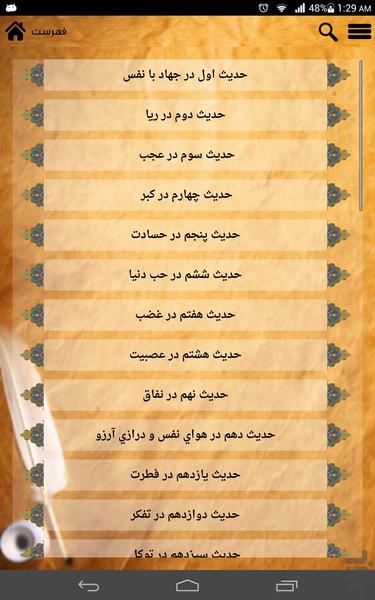 48% 1:29 AM
فهرست
حدیث اول در جهاد با نفس
حدیث دوم در ریا
حدیث سوم در عجب
حدیث چهارم در کبر
حدیث پنجم در حسادت
حدیث ششم در حب دنیا
حدیث هفتم در غضب
حدیث هشتم در عصبیت
حدیث نهم در نفاق
حدیث دهم در هواي نفس و درازي آرزو
حدیث یازدهم در فطرت
حدیث دوازدهم در تفکر
حدیث سیزدهم در توکل